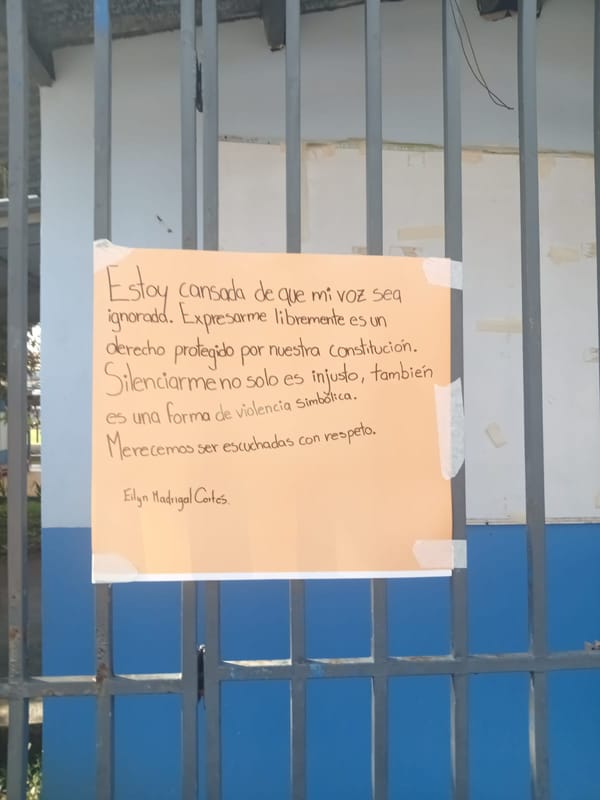 Estoy cansada de que mi voz sea
ignorada. Expresarme libremente es un
derecho protegido por nuestra constitución.
Silenciarme no solo es injusto, también
es una forma de violencia simbólica.
Merecemos ser escuchadas con respeto.
Eilyn Madrigal Cortés.